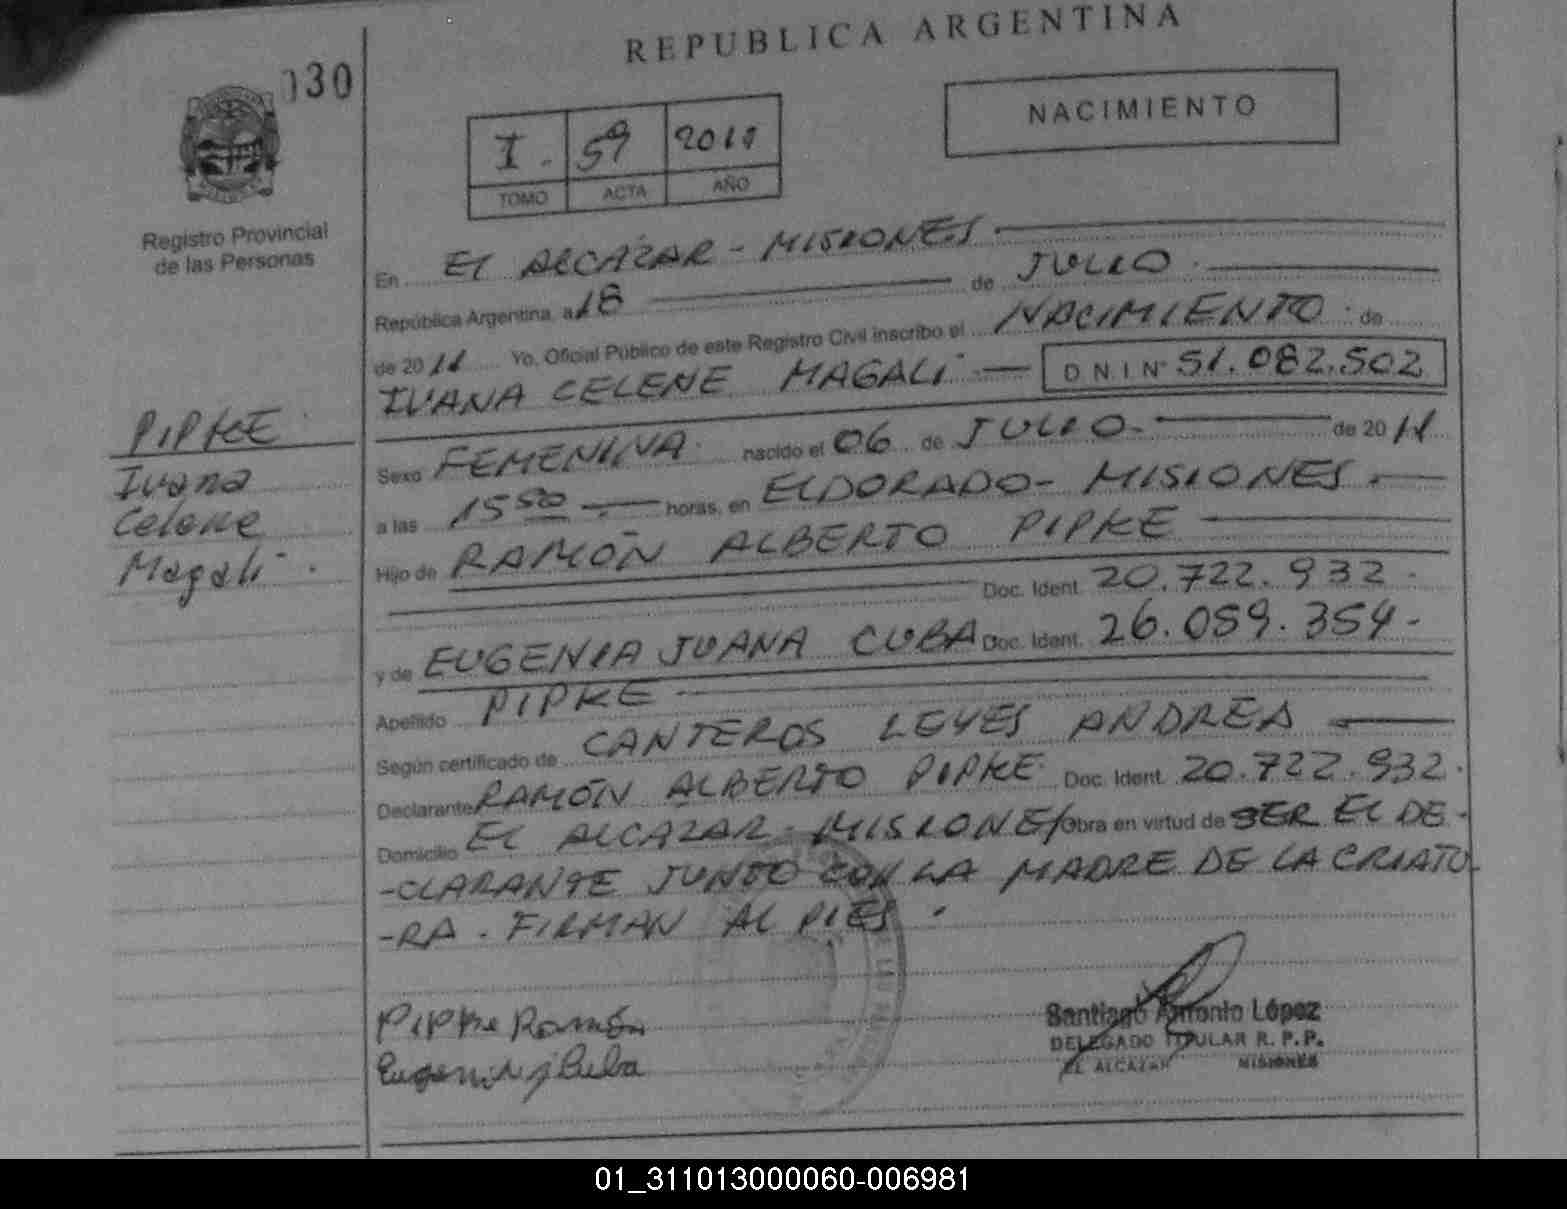 REPUBLICA ARGENTINA
030
NACIMIENTO
I. 59 2011
TOMO ACTA AÑO
Registro Provincial
de las Personas
En EL ALCAZAR - MISIONES
República Argentina, a 18 de JULIO
de 2011 Yo, Oficial Público de este Registro Civil inscribo el NACIMIENTO de
IVANA CELENE MAGALI D.N.I Nº 51.082.502
PIPKE
Ivana
Celene
Magali.
Sexo FEMENINA nacido el 06 de JULIO de 2011
a las 15 50 horas, en ELDORADO - MISIONES
Hijo de RAMÓN ALBERTO PIPKE
Doc. Ident. 20.722.932
y de EUGENIA JUANA CUBA Doc. Ident. 26.059.354
Apellido PIPKE
Según certificado de CANTEROS LEYES ANDREA
Declarante RAMÓN ALBERTO PIPKE Doc. Ident. 20.722.932
Domicilio EL ALCAZAR - MISIONES Obra en virtud de SER EL DE-
-CLARANTE JUNTO CON LA MADRE DE LA CRIATU-
-RA. FIRMAN AL PIES.
Pipke Ramón
Eugenia J Cuba
Santiago Antonio López
DELEGADO TITULAR R. P. P.
EL ALCAZAR MISIONES
01_311013000060-006981